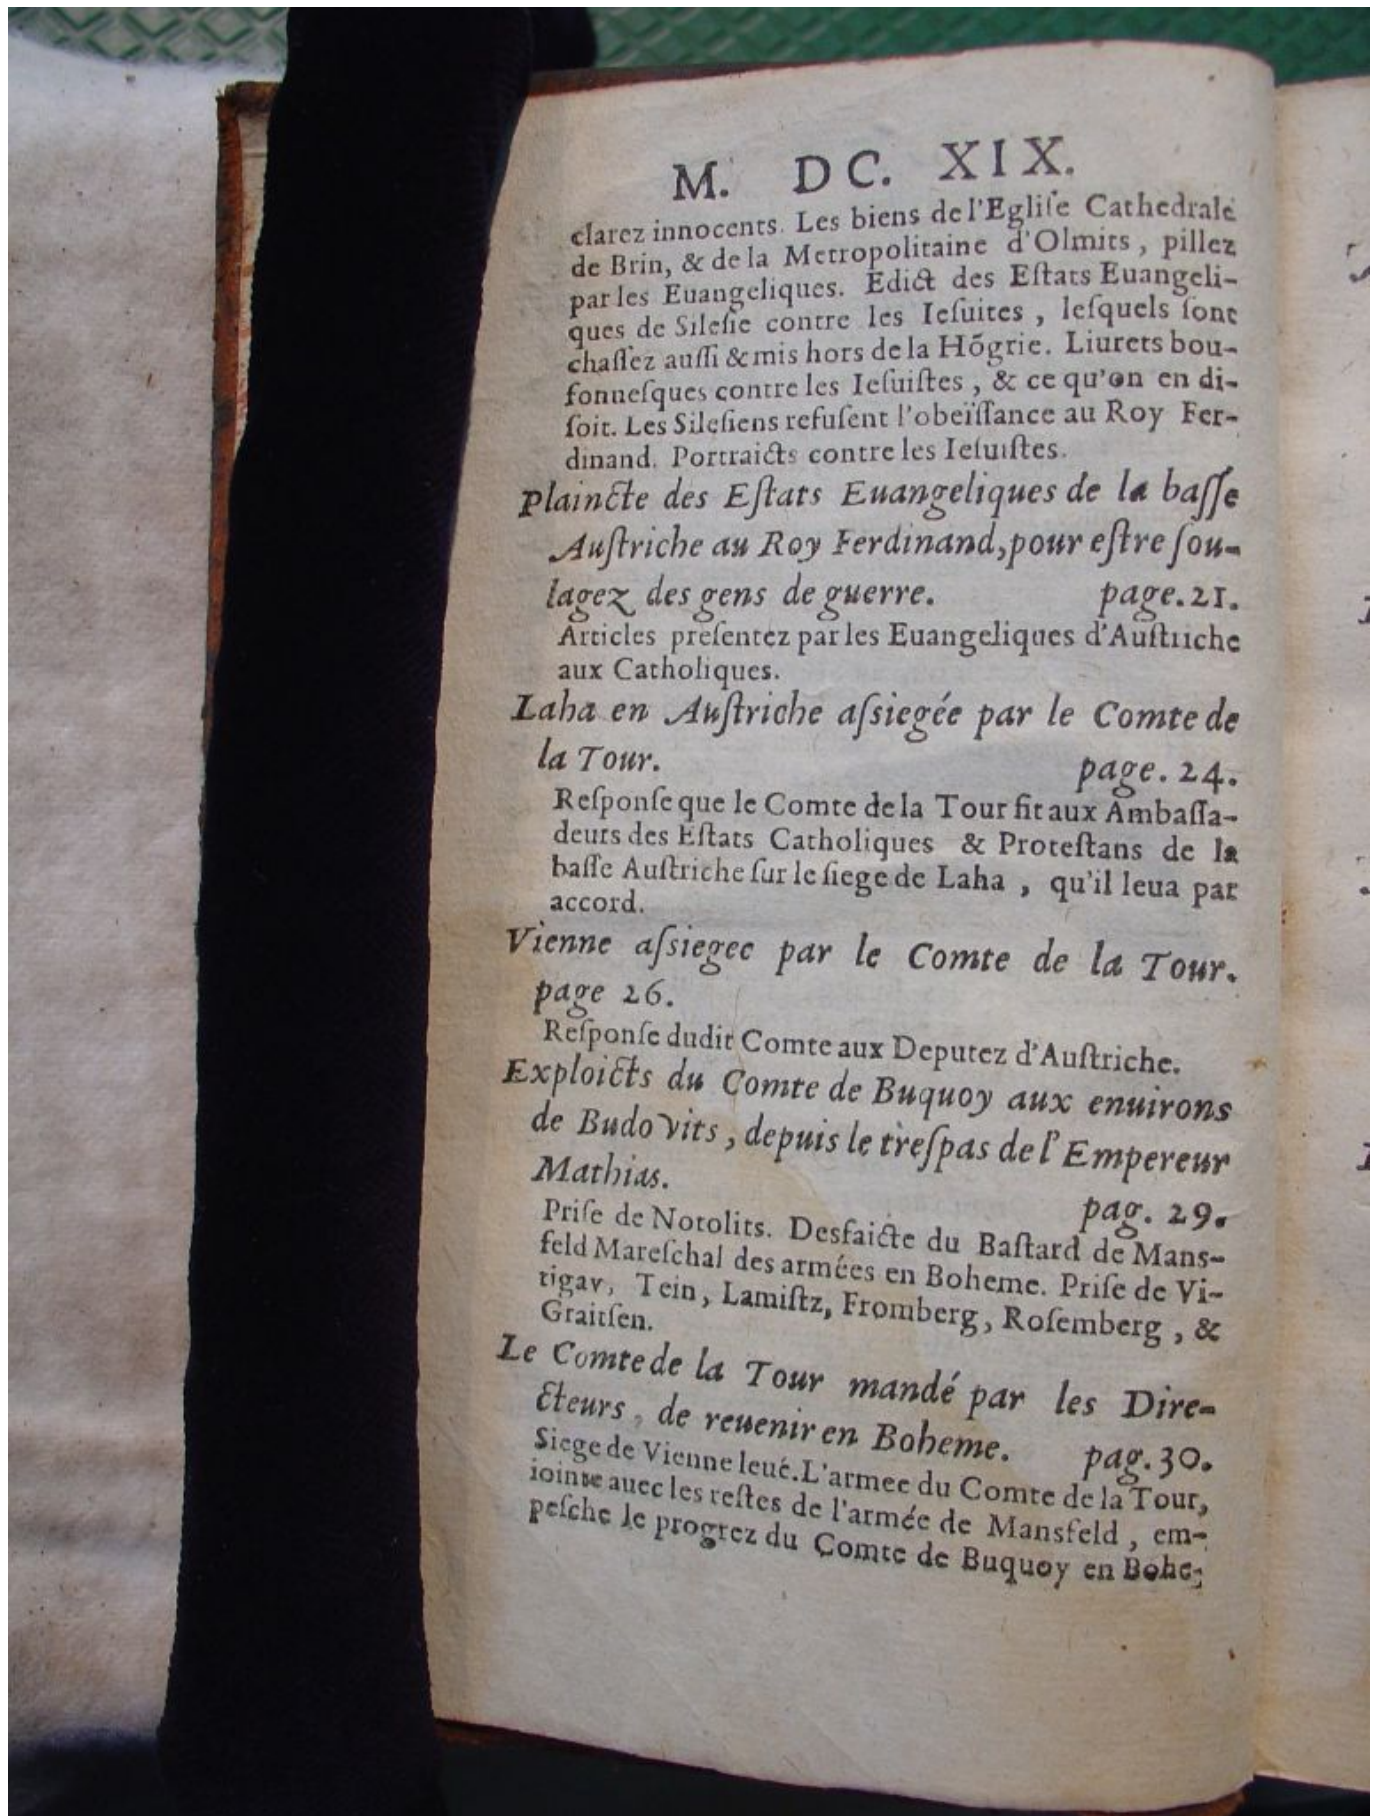 M. DC. XIX.
clarez innocents. Les biens de l'Egliſe Cathedrale
de Brin, & de la Metropolitaine d'Olmits, pillez
par les Euangeliques. Edict des Eſtats Euangeli-
ques de Sileſie contre les Ieſuites, leſquels ſont
chaſſez auſſi & mis hors de la Hõgrie. Liurets bou-
fonneſques contre les Ieſuiſtes, & ce qu'on en di-
ſoit. Les Sileſiens refuſent l'obeïſſance au Roy Fer-
dinand. Portraicts contre les Ieſuiſtes.
Plaincte des Eſtats Euangeliques de la baſſe
Auſtriche au Roy Ferdinand, pour eſtre ſou-
lagez des gens de guerre. page. 21.
Articles preſentez par les Euangeliques d'Auſtriche
aux Catholiques.
Laha en Auſtriche aſsiegée par le Comte de
la Tour. page. 24.
Reſponſe que le Comte de la Tour fit aux Ambaſſa-
deurs des Eſtats Catholiques & Proteſtans de la
baſſe Auſtriche ſur le ſiege de Laha, qu'il leua par
accord.
Vienne aſsiegee par le Comte de la Tour.
page 26.
Reſponſe dudit Comte aux Deputez d'Auſtriche.
Exploicts du Comte de Buquoy aux enuirons
de Budovits, depuis le treſpas de l'Empereur
Mathias. pag. 29.
Priſe de Notolits. Desfaicte du Baſtard de Mans-
feld Mareſchal des armées en Boheme. Priſe de Vi-
tigav, Tein, Lamiſtz, Fromberg, Roſemberg, &
Graitſen.
Le Comte de la Tour mandé par les Dire-
cteurs, de reuenir en Boheme. pag. 30.
Siege de Vienne leué. L'armee du Comte de la Tour,
iointe auec les reſtes de l'armée de Mansfeld, em-
peſche le progrez du Comte de Buquoy en Bohe-